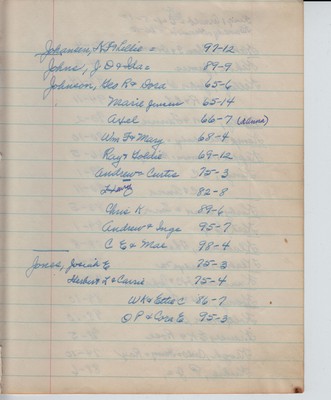 Johansen, N F & Lillie = 97-12
Johns, J D & Ida = 89-9
Johnson, Geo R & Dora 65-6
Marie Jensine 65-14
Axel 66-7
Wm F & Mary 68-4
Ray & Goldie 69-12
Andrew & Curtis 75-3
82-8
Chris K. 89-6
Andrew & Inga 95-7
C E & Mae 98-4
Jones, Josiah E 75-3
Herbert L & Carrie 75-4
W K & Etta C 86-7
O P & Cora E 95-3